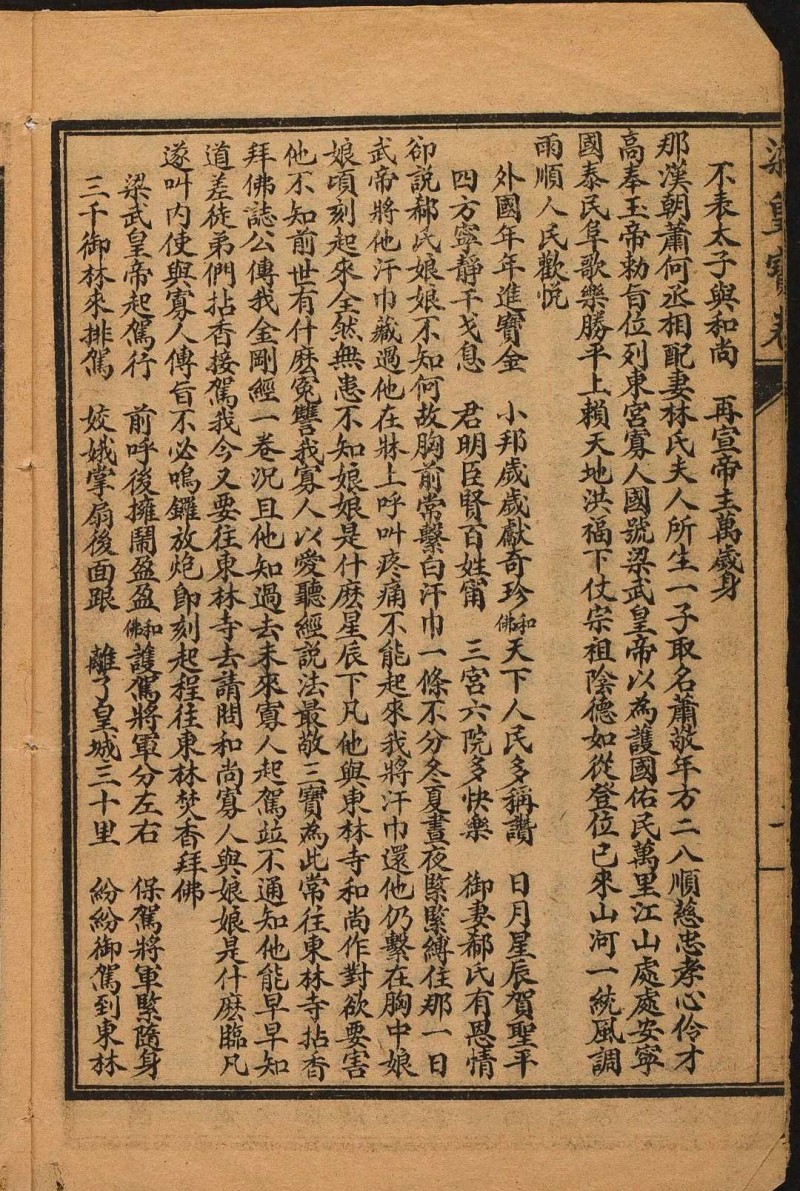 梁皇寶卷
一
不表太子與和尚　再宣帝主萬歲身
那漢朝蕭何丞相配妻林氏夫人所生一子取名蕭敬年方二八順慈忠孝心伶才
高奉玉帝勅旨位列東宮寡人國號梁武皇帝以為護國佑民萬里江山處處安寧
國泰民阜歌樂勝平上賴天地洪福下仗宗祖陰德如從登位已來山河一統風調
雨順人民歡悅
外國年年進寶金　小邦歲歲獻奇珍和佛天下人民多稱讚　日月星辰賀聖平
四方寧靜干戈息　君明臣賢百姓甯　三宮六院多快樂　御妻郗氏有恩情
卻說郗氏娘娘不知何故胸前常繫白汗巾一條不分冬夏晝夜緊緊縛住那一日
武帝將他汗巾藏過他在牀上呼叫疼痛不能起來我將汗巾還他仍繫在胸中娘
娘頃刻起來全然無患不知娘娘是什麽星辰下凡他與東林寺和尚作對欲要害
他不知前世有什麽冤讐我寡人以愛聽經說法最敬三寶為此常往東林寺拈香
拜佛誌公傳我金剛經一卷況且他知過去未來寡人起駕竝不通知他能早早知
道差徒弟們拈香接駕我今又要往東林寺去請問和尚寡人與娘娘是什麽臨凡
遂叫內使與寡人傳旨不必鳴鑼放炮卽刻起程往東林焚香拜佛
梁武皇帝起駕行　前呼後擁鬧盈盈和佛護駕將軍分左右　保駕將軍緊隨身
三千御林來排駕　姣娥掌扇後面跟　離了皇城三十里　紛紛御駕到東林